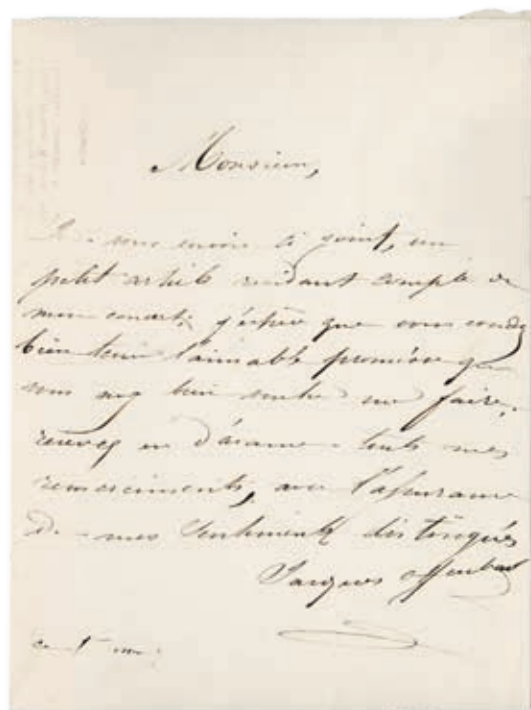 Monsieur,
Je vous envoie ci joint, un
petit article rendant compte de
mon concert; j'espère que vous voudrez
bien tenir l'aimable promesse que
vous avez bien voulu me faire.
recevez en d'avance touts mes
remerciments, avec l'assurance
de mes sentiments distingués
Jacques Offenbach
ce